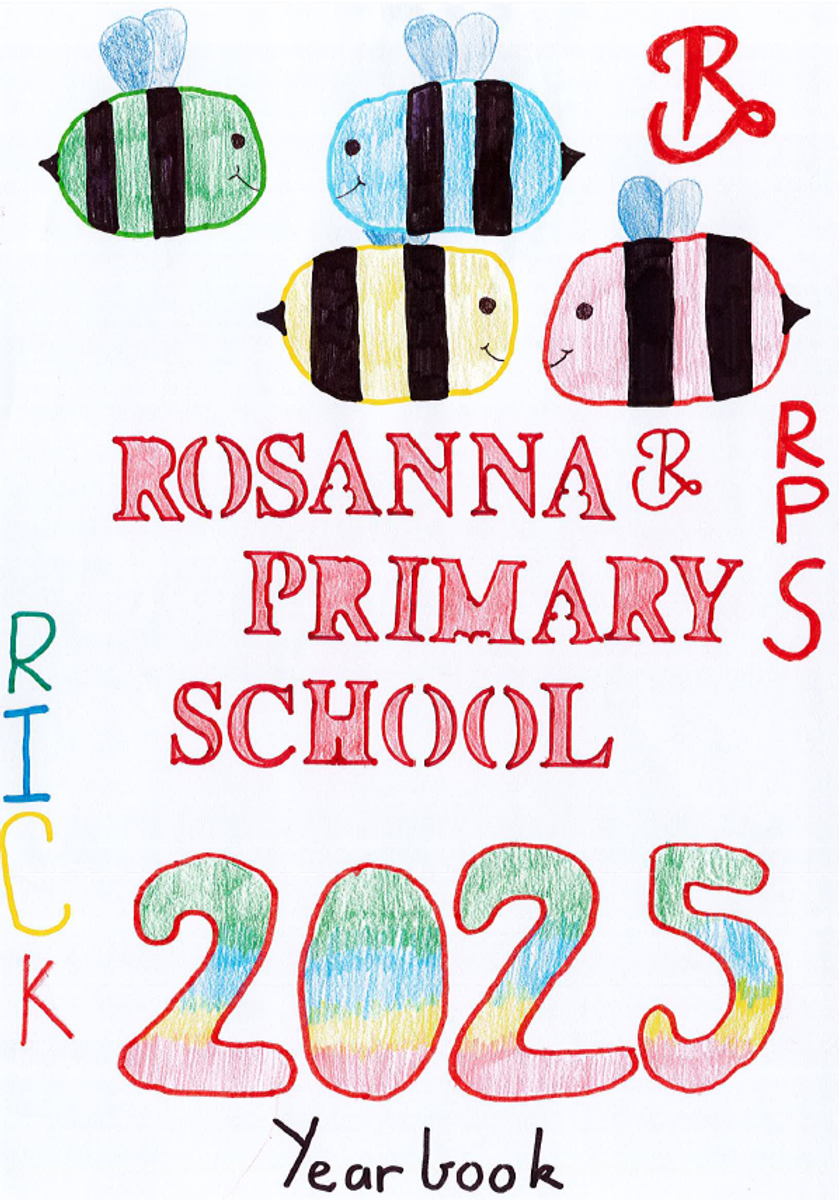 R
ROSANNA R
RPS
PRIMARY
SCHOOL
RICK
2025
Yearbook